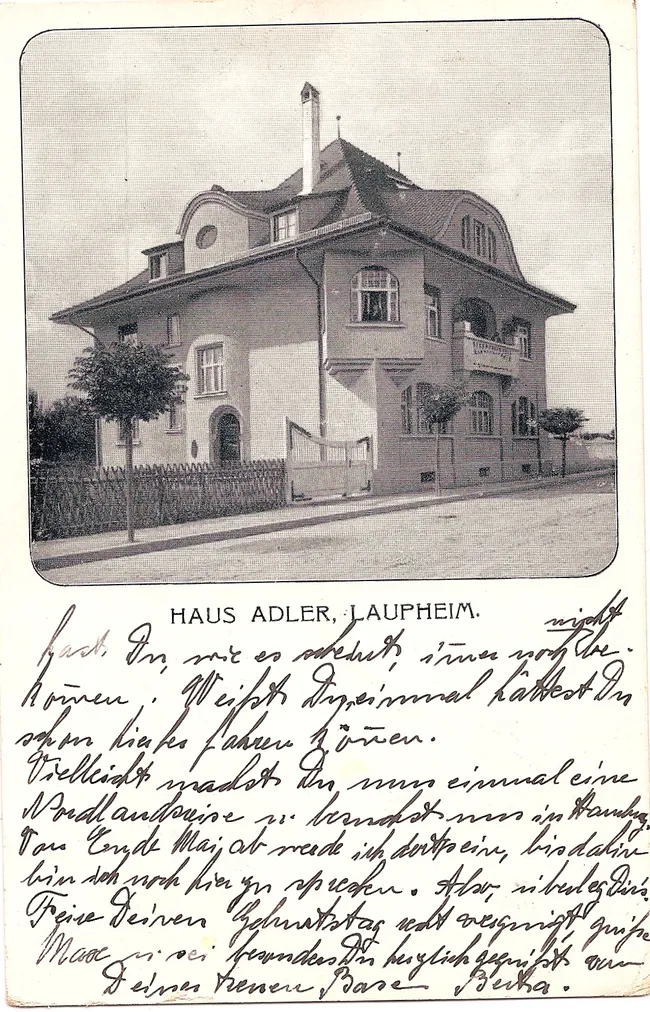 HAUS ADLER, LAUPHEIM.
nicht
hast Du, wie es scheint, im̅er noch be-
kom̅en. Weißt Du, einmal hättest Du
schon hierher fahren kön̅en.
Vielleicht machst Du nun einmal eine
Nordlandreise u. besuchst uns in Hamburg.
Von Ende Mai ab werde ich dort sein, bis dahin
bin ich noch hier zu sprechen. Also, überleg Dir's.
Feire Deinen Geburtstag recht vergnügt, grüße
Max u. sei besonders Du herzlich gegrüßt von
Deiner treuen Base Berta.